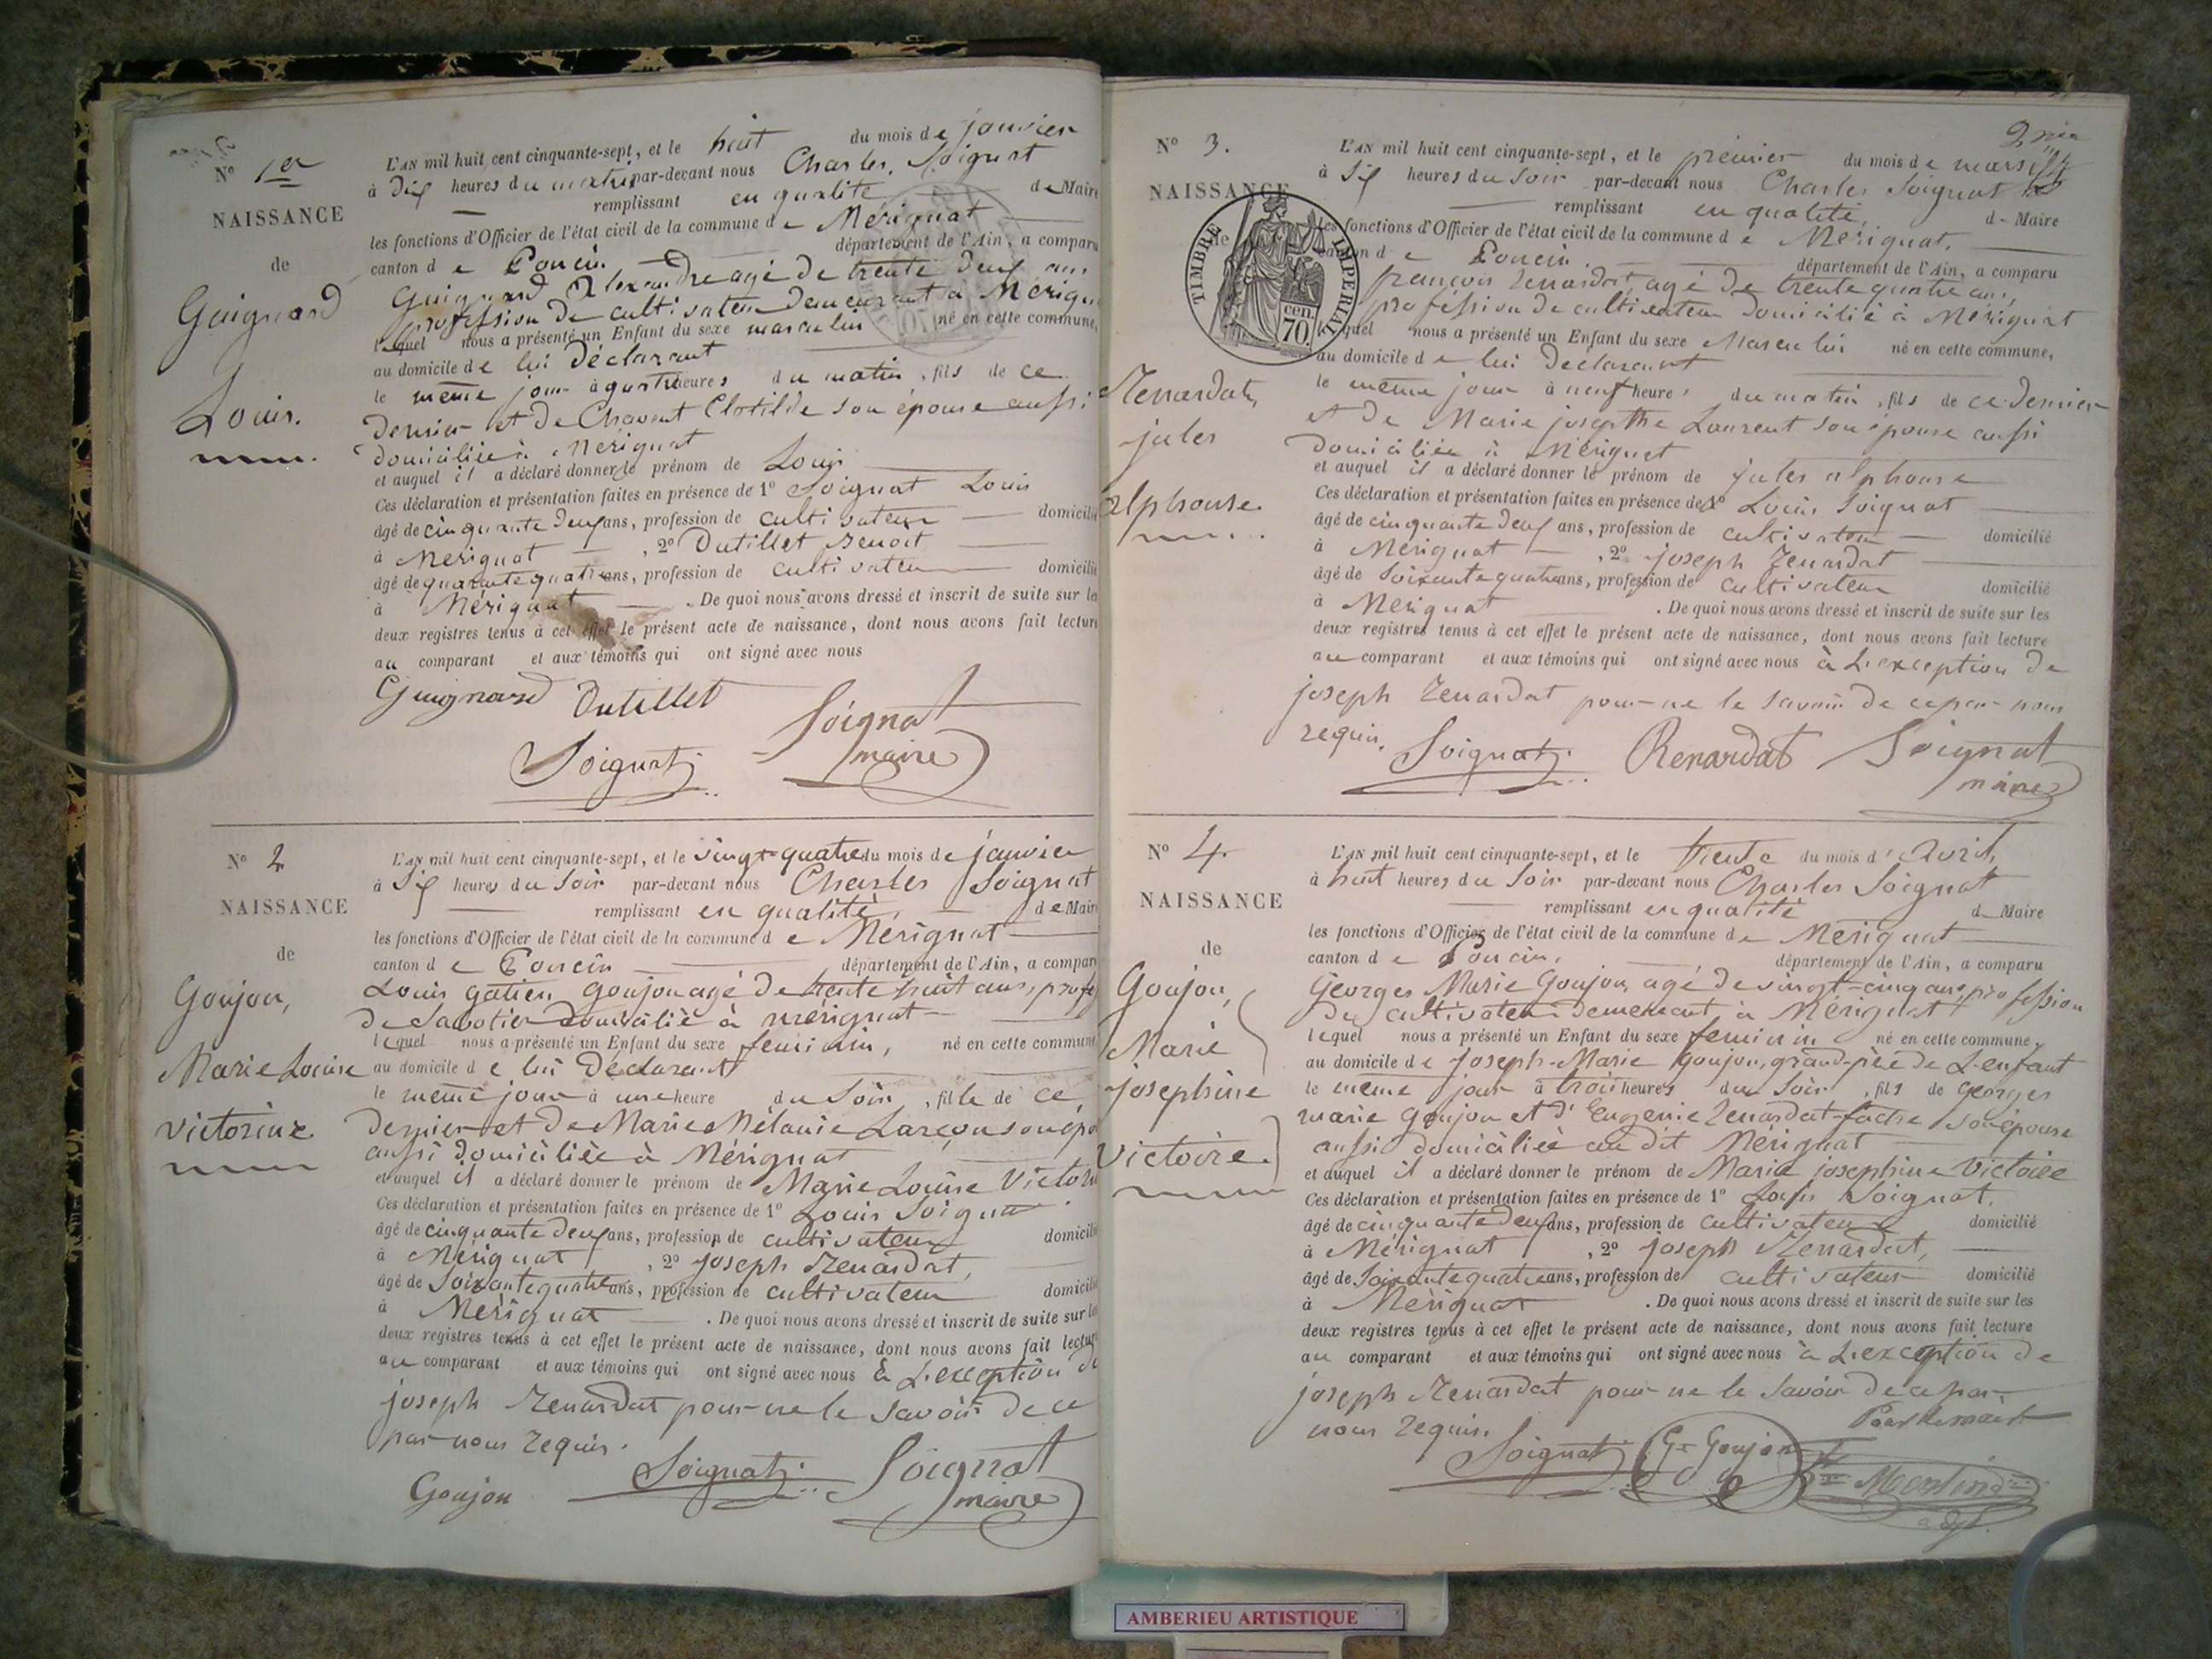 N° 1er
NAISSANCE
de
Guignard
Louis.
L'AN mil huit cent cinquante-sept, et le huit du mois de janvier
à dix heures du matin par-devant nous Charles Soignat
remplissant en qualité de Maire
les fonctions d'Officier de l'état civil de la commune de Mérignat
canton de Poncin département de l'Ain, a comparu
Guignard Alexandre agé de trente deux ans
profession de cultivateur demeurant a Mérignat
lequel nous a présenté un Enfant du sexe masculin né en cette commune,
au domicile de lui déclarant
le même jour à quatre heures du matin, fils de ce
dernier et de Chavent Clotilde son épouse aussi
domiciliée à Mérignat
et auquel il a déclaré donner le prénom de Louis
Ces déclaration et présentation faites en présence de 1° Soignat Louis
âgé de cinquante deux ans, profession de cultivateur domicilié
à Mérignat, 2° Dutillet Benoit
âgé de quarante quatre ans, profession de cultivateur domicilié
à Mérignat. De quoi nous avons dressé et inscrit de suite sur les
deux registres tenus à cet effet le présent acte de naissance, dont nous avons fait lecture
au comparant et aux témoins qui ont signé avec nous
Guignard Dutillet Soignat
maire
Soignat
N° 2
NAISSANCE
de
Goujon,
Marie Louise
Victorine
L'AN mil huit cent cinquante-sept, et le vingt-quatre du mois de janvier
à six heures du soir par-devant nous Charles Soignat
remplissant en qualité, de Maire
les fonctions d'Officier de l'état civil de la commune de Mérignat
canton de Poncin département de l'Ain, a comparu
Louis gatien goujon agé de trente huit ans, profes
de Sabotier domicilié à mérignat
lequel nous a présenté un Enfant du sexe feminin, né en cette commune
au domicile de lui déclarant
le même jour à une heure du soir, fille de ce
dernier et de Marie Mélanie Larçon son épo
aussi domiciliée à Mérignat
et auquel il a déclaré donner le prénom de Marie Louise Victori
Ces déclaration et présentation faites en présence de 1° Louis Soignat
âgé de cinquante deux ans, profession de cultivateur domicilié
à Mérignat, 2° joseph Renardat,
âgé de soixante quatre ans, profession de cultivateur domicilié
à Mérignat. De quoi nous avons dressé et inscrit de suite sur les
deux registres tenus à cet effet le présent acte de naissance, dont nous avons fait lecture
au comparant et aux témoins qui ont signé avec nous à L'exception de
joseph Renardat pour ne le savoir de ce
par nous requis.
Goujon Soignat Soignat
maire
2
N° 3.
NAISSANCE
de
TIMBRE IMPERIAL
cen.
70.
Renardat,
jules
alphonse.
L'AN mil huit cent cinquante-sept, et le premier du mois de mars
à six heures du soir par-devant nous Charles Soignat
remplissant en qualité, de Maire
les fonctions d'Officier de l'état civil de la commune de Mérignat.
canton de Poncin. département de l'Ain, a comparu
françois Renardat, agé de trente quatre ans,
profession de cultivateur domicilié à Mérignat
lequel nous a présenté un Enfant du sexe Masculin né en cette commune,
au domicile de lui déclarant
le même jour à neuf heures du matin, fils de ce dernier
et de Marie josepthe Laurent son épouse aussi
domiciliée à Mérignat
et auquel il a déclaré donner le prénom de jules alphonse
Ces déclaration et présentation faites en présence de 1° Louis Soignat
âgé de cinquante deux ans, profession de cultivateur domicilié
à Mérignat, 2° joseph Renardat
âgé de soixante quatre ans, profession de cultivateur domicilié
à Mérignat. De quoi nous avons dressé et inscrit de suite sur les
deux registres tenus à cet effet le présent acte de naissance, dont nous avons fait lecture
au comparant et aux témoins qui ont signé avec nous à L'exception de
joseph Renardat pour ne le savoir de ce par nous
requis.
Soignat Renardat Soignat
maire
N° 4.
NAISSANCE
de
Goujon,
Marie
josephine
Victoire.
L'AN mil huit cent cinquante-sept, et le trente du mois d'Avril,
à huit heures du soir par-devant nous Charles Soignat
remplissant en qualité de Maire
les fonctions d'Officier de l'état civil de la commune de Mérignat
canton de Poncin, département de l'Ain, a comparu
Georges Marie Goujon agé de vingt-cinq ans, profession
de cultivateur demeurant à Mérignat
lequel nous a présenté un Enfant du sexe feminin né en cette commune,
au domicile de Joseph-Marie Goujon, grand-père de L'enfant
le même jour à trois heures du soir, fils de georges
marie goujon et d'Eugenie Renardat-fache son épouse
aussi domiciliée au dit Mérignat
et auquel il a déclaré donner le prénom de Marie josephine Victoire
Ces déclaration et présentation faites en présence de 1° Louis Soignat.
âgé de cinquante deux ans, profession de cultivateur domicilié
à Mérignat, 2° joseph Renardat,
âgé de soixante quatre ans, profession de cultivateur domicilié
à Mérignat. De quoi nous avons dressé et inscrit de suite sur les
deux registres tenus à cet effet le présent acte de naissance, dont nous avons fait lecture
au comparant et aux témoins qui ont signé avec nous à L'exception de
joseph Renardat pour ne le savoir de ce par
nous requis. Pour le maire
Soignat G. Goujon
AMBERIEU ARTISTIQUE